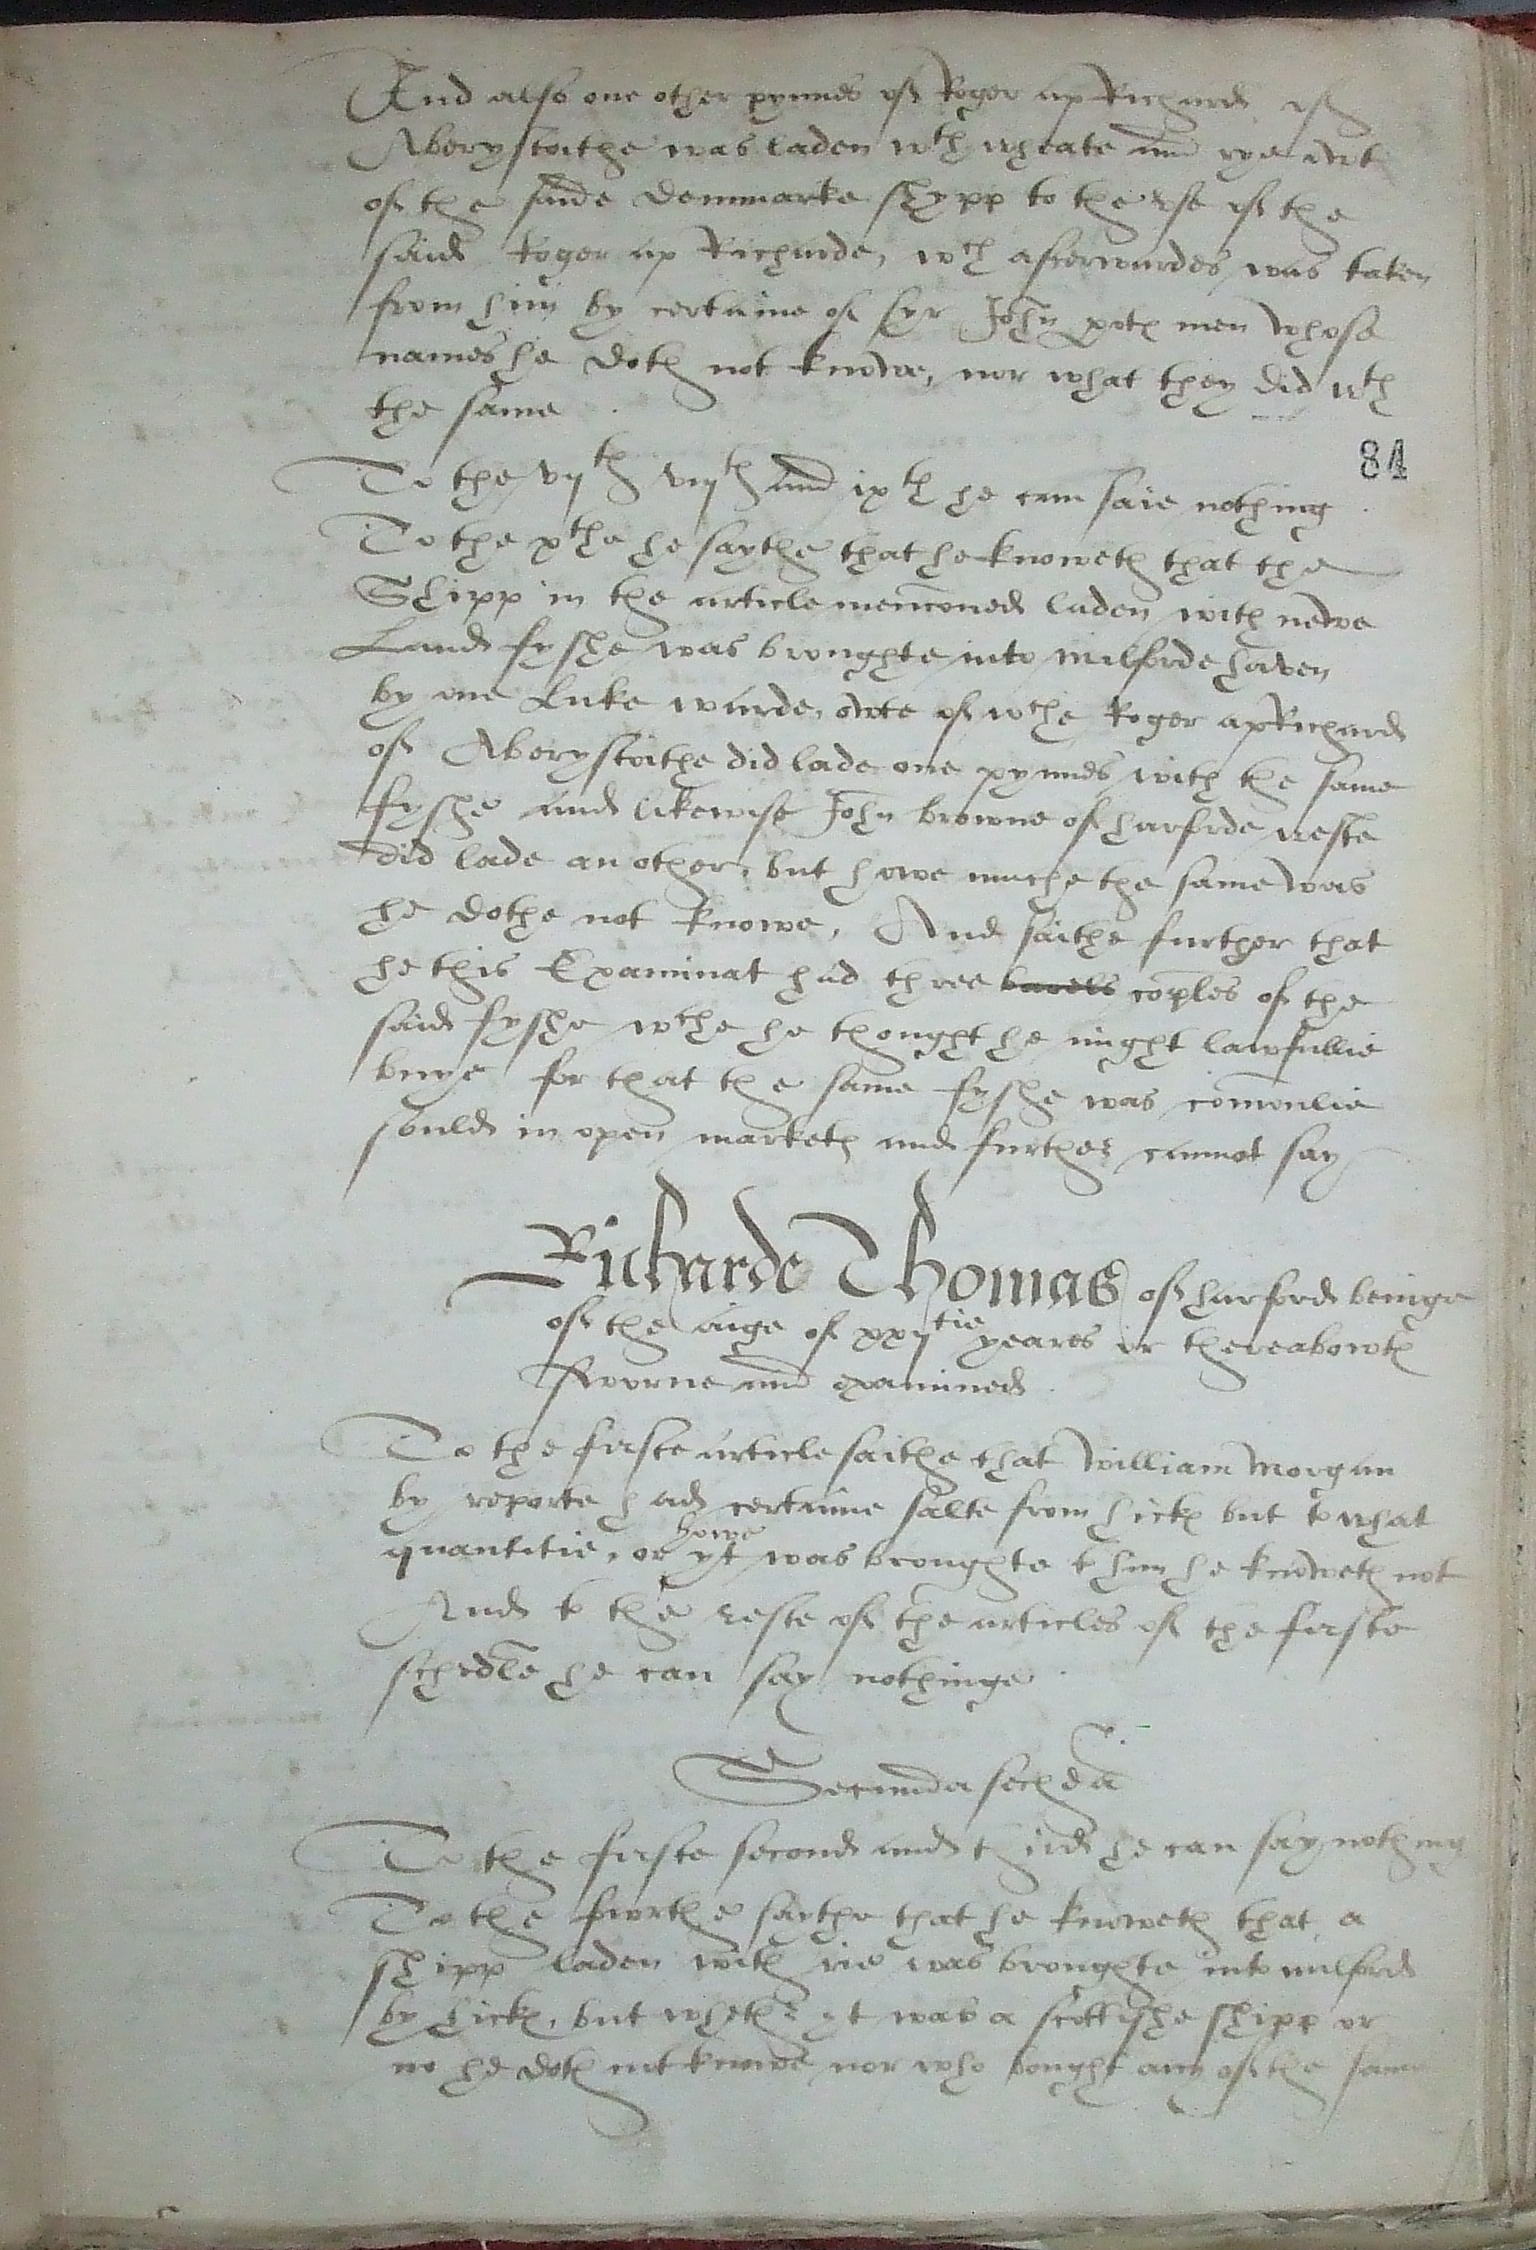 And also one other pynnes of Roger ap Richard of
Aberystoithe was laden wth wheate and rye owt
of the saide Denmarke shypp to the use of the
said Roger ap Richarde, wch afterwardes was taken
from him by certaine of Syr John men whose
names he doth not knowe, nor what they did wth
the same.
84
To the vijth viijth and ixth he can saie nothing.
To the xthe he saythe that he knoweth that the
Shipp in the article menconed laden with newe
Land fyshe was broughte into Milforde haven
by one Luke Warde, owte of wche Roger ap Richard
of Aberystoithe did lade one pynnes with the same
fyshe and likewise John Browne of harforde weste
did lade an other, but howe muche the same was
he dothe not knowe, And saithe further that
he this Examinat had three barels coples of the
said fyshe wche he thought he might lawfullie
buye for that the same fyshe was comonlie
sould in open marketh and further cannot say
Richarde Thomas of harford beinge
of the aige of xxijtie yeares or thereabowth
sworne and examined.
To the firste article saithe that William Morgan
by reporte had certaine salte from hicks but to what
quantitie, or howe yt was broughte to him he knoweth not
And to the reste of the articles of the firste
schedle he can say nothinge.
Secunda scheda
To the firste second and third he can say nothing
To the fowrthe saythe that he knoweth that a
shipp laden with rie was broughte into Milford
by hicks, but whether yt was a scottishe shipp or
no he doth not knowe nor who bought any of the same